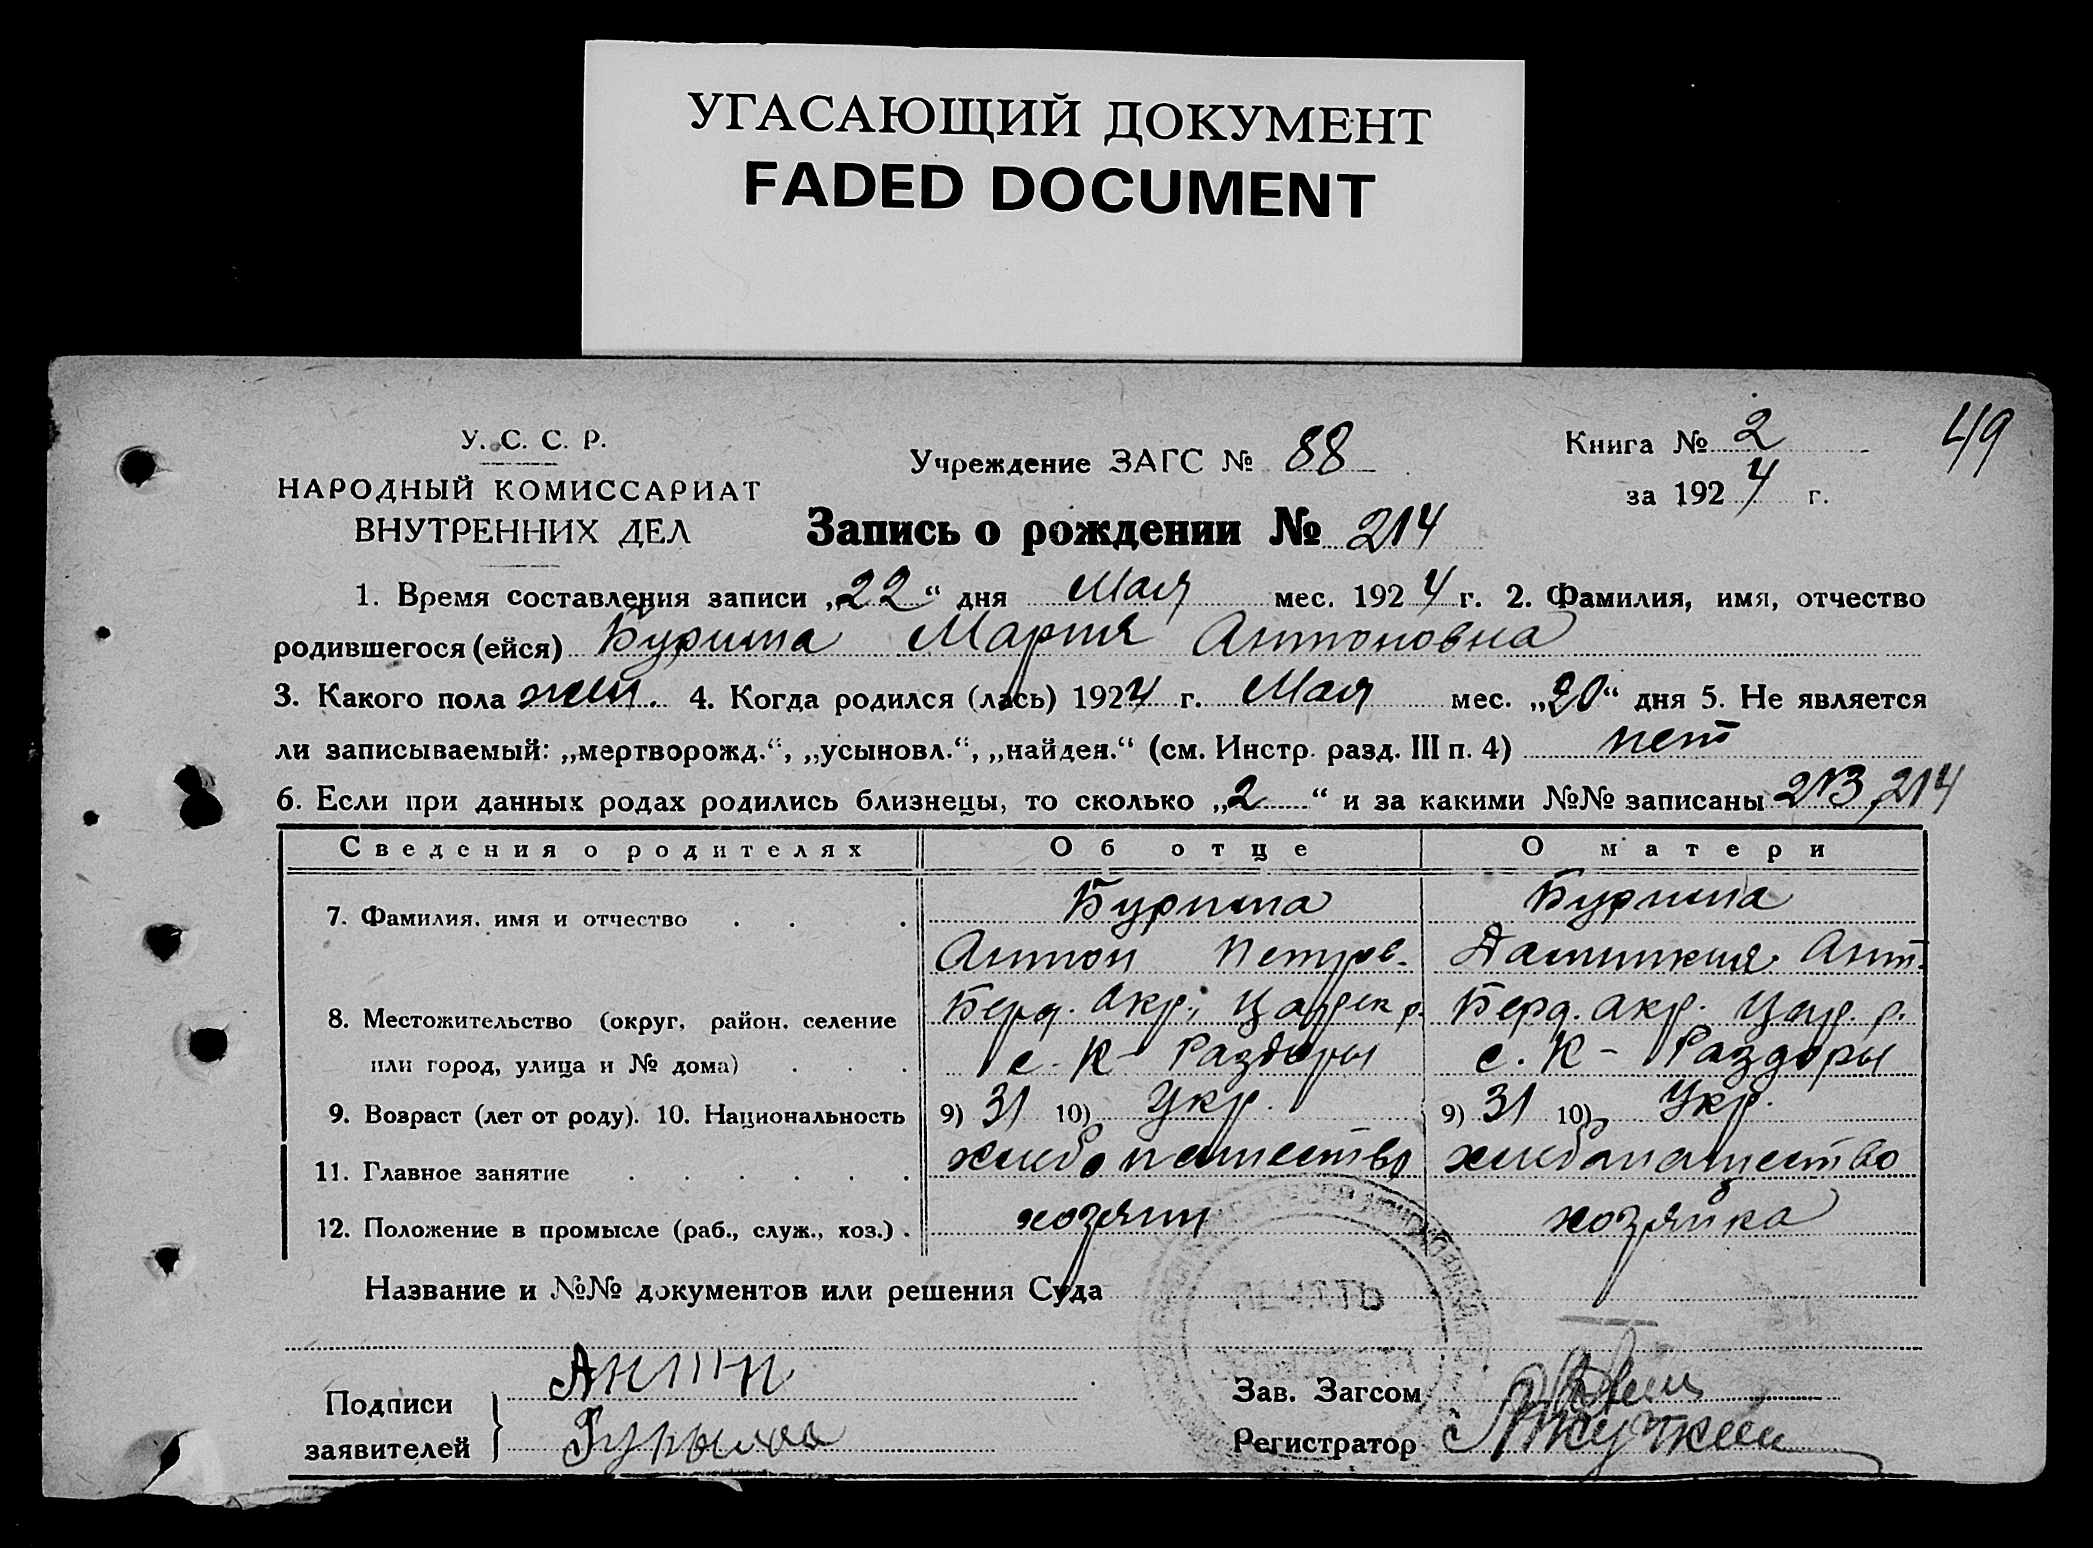 УГАСАЮЩИЙ ДОКУМЕНТ
FADED DOCUMENT
У. С. С. Р.
НАРОДНЫЙ КОМИССАРИАТ
ВНУТРЕННИХ ДЕЛ
Учреждение ЗАГС № 88
Книга № 2
49
за 1924 г.
Запись о рождении № 214
1. Время составления записи „22“ дня Мая мес. 1924 г. 2. Фамилия, имя, отчество
родившегося (ейся) Бурима Мария Антоновна
3. Какого пола жен. 4. Когда родился (лась) 1924 г. Мая мес. „20“ дня 5. Не является
ли записываемый: „мертворожд.“, „усыновл.“, „найден.“ (см. Инстр. разд. III п. 4) нет
6. Если при данных родах родились близнецы, то сколько „2“ и за какими №№ записаны 213, 214
Сведения о родителях Об отце О матери
7. Фамилия, имя и отчество . . . Бурима Бурима
Антон Петров. Ант.
8. Местожительство (округ, район, селение Берд. окр., Царек р. Берд. окр. Цар. р.
или город, улица и № дома) . . . с. К - Раздоры с. К - Раздоры
9. Возраст (лет от роду). 10. Национальность 9) 31 10) Укр. 9) 31 10) Укр.
11. Главное занятие . . . . . . хлебопашество хлебопашество
12. Положение в промысле (раб., служ., хоз.) . хозяин хозяйка
Название и №№ документов или решения Суда
ПЕЧАТЬ
Подписи
заявителей
Антин
Бурыма
Зав. Загсом
Регистратор